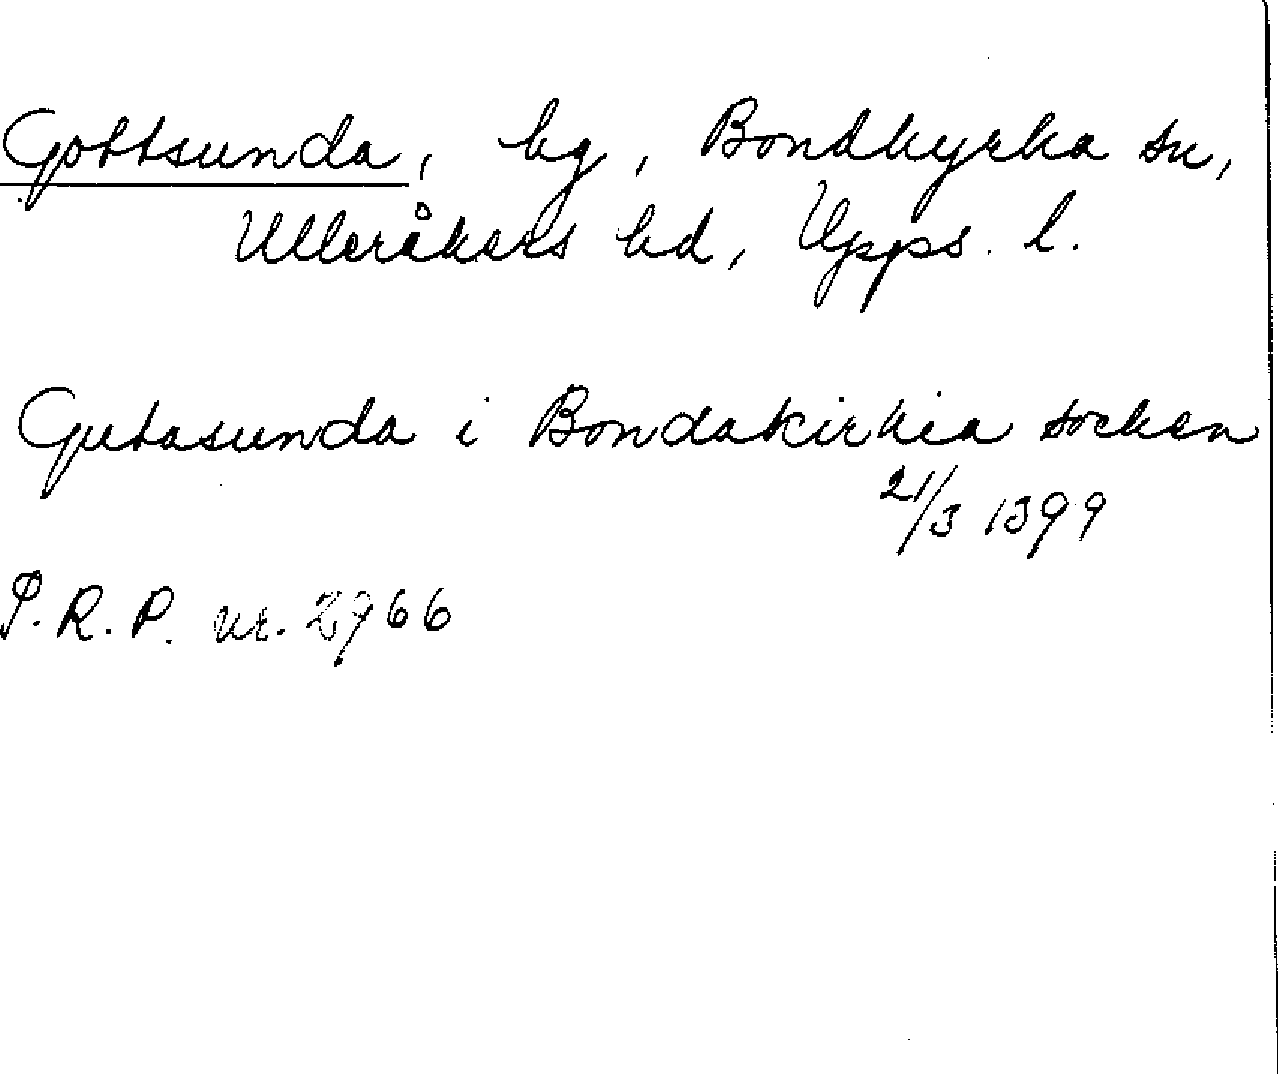 Gottsunda, bg, Bondkyrka sn,
Ulleråkers hd, Upps. l.
Gutasunda i Bondakirkia socken
21/3 1399
P.R.P. nr. 2966